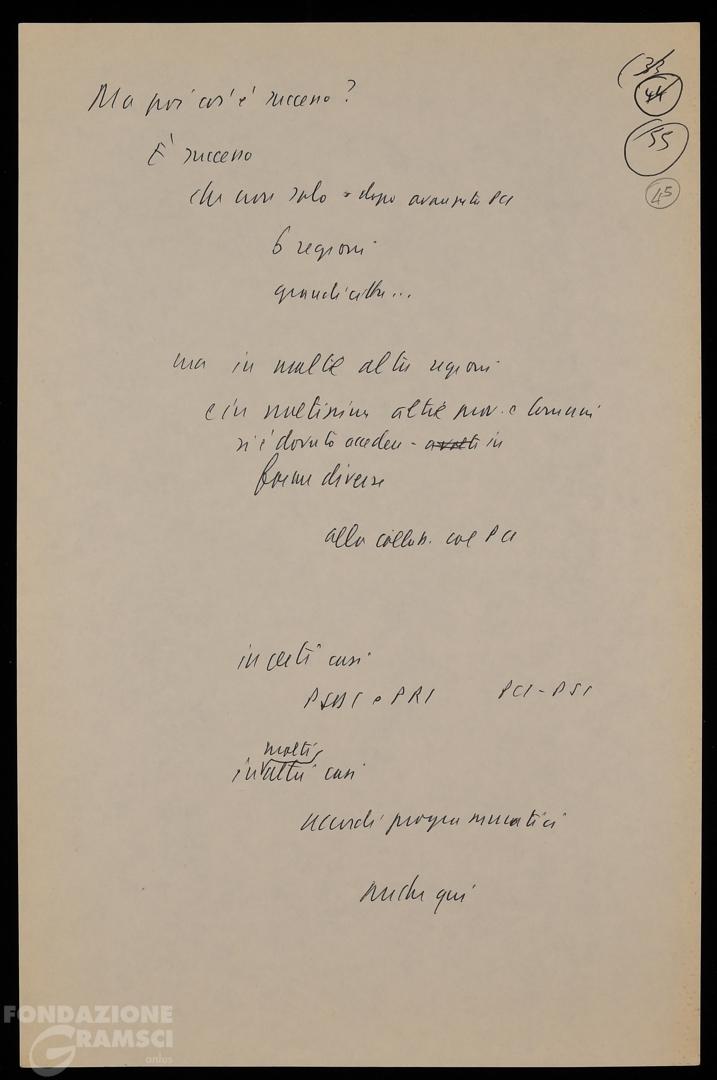 33
44
55
45
Ma poi cos'è successo?
È successo
che non solo - dopo avanzata PCI
6 regioni
grandi città...
ma in molte altre regioni
e in moltissime altre prov. e comuni
si è dovuto accedere - in
forme diverse
alla collab. col PCI
in certi casi
PSDI e PRI PCI - PSI
molti
in altri casi
accordi programmatici
anche qui
FONDAZIONE
GRAMSCI
onlus